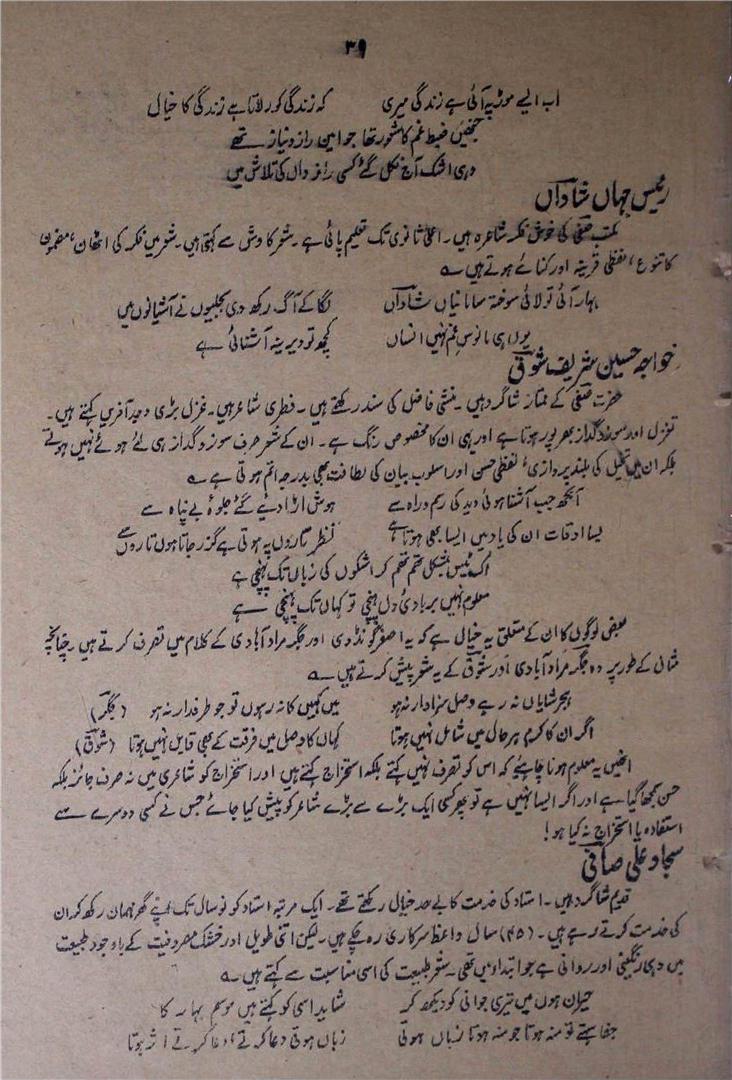 ۳۹
اب ایسے موڑ پہ آئی ہے زندگی میری کہ زندگی کو رلاتا ہے زندگی کا خیال
جنھیں ضبط غم کا شعور تھا جو امین راز و نیاز تھے
وہی اشک آج نکل گئے کسی راز داں کی تلاش میں
رئیس جہاں شاداں
مکتب صفی کی خوش فکر شاعرہ ہیں۔ اعلیٰ ثانوی تک تعلیم پائی ہے۔ شعر کاوش سے کہتی ہیں۔ شعر میں فکر کی اٹھان، مضمون
کا تنوع، لفظی قرینہ اور کنائے ہوتے ہیں۔
بہار آئی تو لائی سوختہ سامانیاں شاداں لگا کے آگ رکھ دی بجلیوں نے آشیانوں میں
یوں ہی مانوس غم نہیں انساں کچھ تو دیرینہ آشنائی ہے
خواجہ حسین شریف شوق
حضرت صفی کے ممتاز شاگرد ہیں۔ منشی فاضل کی سند رکھتے ہیں۔ فطری شاعر ہیں۔ غزل بڑی وجد آفریں کہتے ہیں۔
تغزل اور سوز و گداز بھرپور ہوتا ہے اور یہی ان کا مخصوص رنگ ہے۔ ان کے شعر صرف سوز و گداز ہی لئے ہوئے نہیں ہوتے
بلکہ ان میں تخیل کی بلند پروازی، لفظی حسن اور اسلوب بیان کی لطافت بھی بدرجہ اتم ہوتی ہے۔
آنکھ جب آشنا ہوئی دید کی رسم و راہ سے ہوش اڑا دیئے گئے جلوۂ بے پناہ سے
بسا اوقات ان کی یاد میں ایسا بھی ہوتا ہے نظر تاروں پہ ہوتی ہے گزر جاتا ہوں تاروں سے
اک ٹیس بمشکل تھم تھم کر اشکوں کی زباں تک پہنچی ہے
معلوم نہیں بربادئ دل پہنچی تو کہاں تک پہنچی ہے
بعض لوگوں کا ان کے متعلق یہ خیال ہے کہ یہ اصغر گونڈوی اور جگر مراد آبادی کے کلام میں تصرف کرتے ہیں۔ چنانچہ
مثال کے طور پر وہ جگر مراد آبادی اور شوق کے یہ شعر پیش کرتے ہیں۔
ہجر شایاں نہ رہے وصل سزاوار نہ ہو میں کہیں کا نہ رہوں تو جو طرفدار نہ ہو (جگر)
اگر ان کا کرم ہر حال میں شامل نہیں ہوتا کہاں کا وصل میں فرقت کے بھی قابل نہیں ہوتا (شوق)
انھیں یہ معلوم ہونا چاہیئے کہ اس کو تصرف نہیں کہتے بلکہ استخراج کہتے ہیں اور استخراج کو شاعری میں نہ صرف جائز بلکہ
حسن سمجھا گیا ہے اور اگر ایسا نہیں ہے تو پھر کسی ایک بڑے سے بڑے شاعر کو پیش کیا جائے جس نے کسی دوسرے سے
استفادہ یا استخراج نہ کیا ہو!
سجاد علی صافی
قدیم شاگرد ہیں۔ استاد کی خدمت کا بے حد خیال رکھتے تھے۔ ایک مرتبہ استاد کو نو سال تک اپنے گھر مہمان رکھ کر ان
کی خدمت کرتے رہے ہیں۔ (۴۵) سال واعظ سرکاری رہ چکے ہیں۔ لیکن اتنی طویل اور خشک مصروفیت کے باوجود طبیعت
میں وہی رنگینی اور روانی ہے جو ابتداء میں تھی۔ شعر طبیعت کی اسی مناسبت سے کہتے ہیں۔
حیران ہوں میں تیری جوانی کو دیکھ کر شاید اسی کو کہتے ہیں موسم بہار کا
جفا سہتے تو منہ ہوتا جو منہ ہوتا زباں ہوتی زباں ہوتی دعا کرتے، دعا کرتے اثر ہوتا